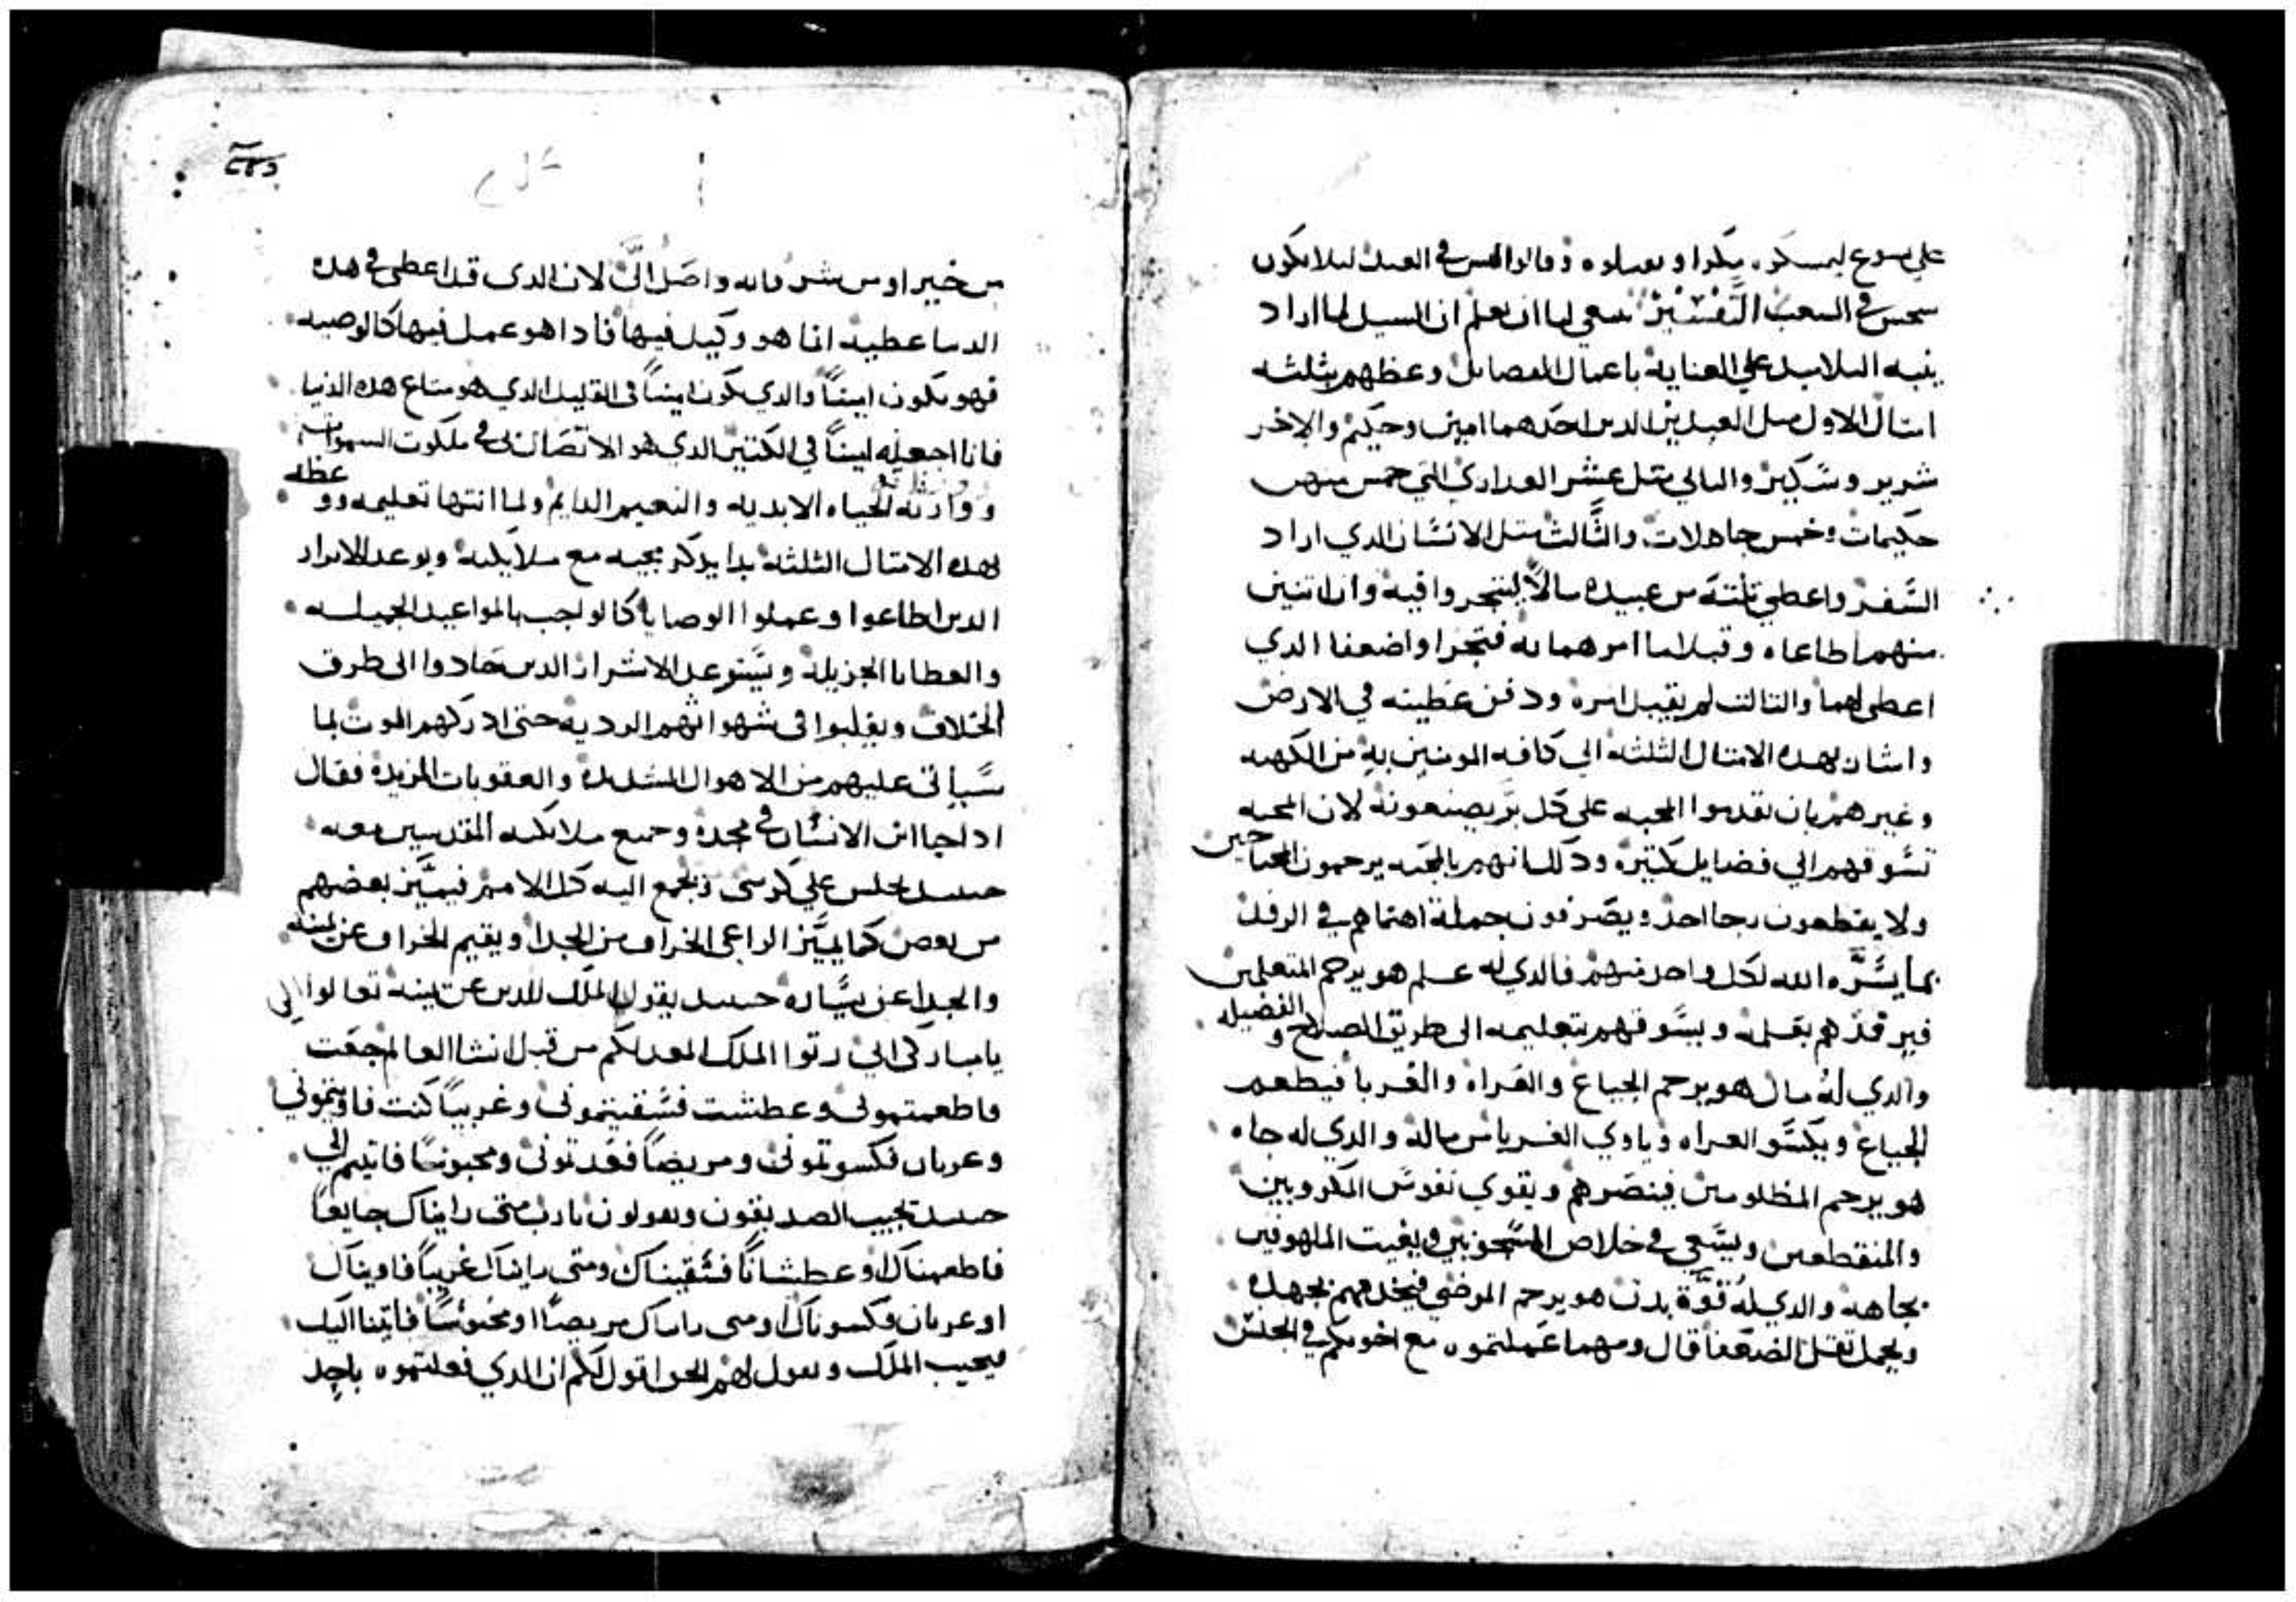 على يسوع ليمسكوه بمكرا ويقتلوه وقالوا ليس في العيد ليلا يكون
سجس في الشعب التفسير ينبغي لنا ان نعلم ان السيد لما اراد
ينبه التلاميد علي العناية باعمال الفضايل وعظهم بثلثه
امتال الاول مثل العبدين الدين احدهما امين وحكيم والاخر
شرير وسكير والتاني مثل عشر العداري التي خمس منهن
حكيمات وخمس جاهلات والثالث مثل الانسان الدي اراد
السفر واعطي ثلثة من عبيده مالاً ليتجروا فيه وان اتنين
منهما طاعاه وقبلا ما امرهما به فتجرا واضعفا الدي
اعطي لهما والتالت لم يقبل امره ودفن عطيته في الارض
واشار بهده الامتال الثلثه الي كافه المومنين به من الكهنه
وغيرهم بان يقدموا المحبه علي كل بر يصنعونه لان المحبه
تسوقهم الي فضايل كتيره ودلك انهم بالمحبه يرحمون المحتاجين
ولا يقطعون رجا احد ويصرفون جملة اهتمامهم في الرفد
بما يسره الله لكل واحد منهم فالدي له علم هو يرحم المتعلمين
فيرفدهم بعلمه ويسوقهم بتعليمه الى طريق الصلاح والفضيله
والدي له مال هو يرحم الجياع والعراه والغربا فيطعم
الجياع ويكسو العراه وياوي الغربا من ماله والدي له جاه
هو يرحم المظلومين فينصرهم ويقوي نفوس المكروبين
والمنقطعين ويسعي في خلاص المسجونين ويغيت الملهوفين
بجاهه والدي له قوة بدن هو يرحم المرضي فيخدمهم بجهده
ويحمل تقل الضعفا قال ومهما عملتموه مع اخوتكم في الجنس
من خير او من شر فانه واصل الىّ لان الدي قد اعطي في هده
الدنيا عطيه انما هو وكيل فيها فادا هو عمل فيها كالوصيه
فهو يكون اميناً والدي يكون اميناً في القليل الدي هو متاع هده الدنيا
فانا اجعله اميناً في الكتير الدي هو الاتصال بي في ملكوت السموات
ووراثة الحياه الابديه والنعيم الدايم ولما انتها تعليمه ووعظه
بهده الامتال الثلثه بدا يدكر مجيه مع ملايكته ويوعد الابرار
الدين اطاعوا وعملوا الوصايا كالواجب بالمواعيد الجميله
والعطايا الجزيلة ويتوعد الاشرار الدين حادوا الى طرق
الخلاف وتقلبوا في شهواتهم الرديه حتى ادركهم الموت لما
سياتي عليهم من الاهوال المشدده والعقوبات المزيدة فقال
ادا جا ابن الانسان في مجده وجميع ملايكته المقدسين معه
حينيد يجلس علي كرسي ويجمع اليه كل الامم فيميز بعضهم
من بعض كما يميز الراعي الخراف من الجدا ويقيم الخراف عن يمينه
والجدا عن يساره حينيد يقول الملك للدين عن يمينه تعالوا الي
يا مباركي ابي رتوا الملك المعد لكم من قبل انشا العالم جعت
فاطعمتموني وعطشت فسقيتموني وغريباً كنت فاويتموني
وعريان فكسوتموني ومريضاً فعدتموني ومحبوسًا فاتيتم الي
حينيد تجيب الصديقون ويقولون يا رب متى رايناك جايعاً
فاطعمناك او عطشاناً فسقيناك ومتى رايناك غريباً فاويناك
او عريان فكسوناك او متى رايناك مريضاً او محبوساً فاتينا اليك
فيجيب الملك ويقول لهم الحق اقول لكم ان الدي فعلتموه باحد